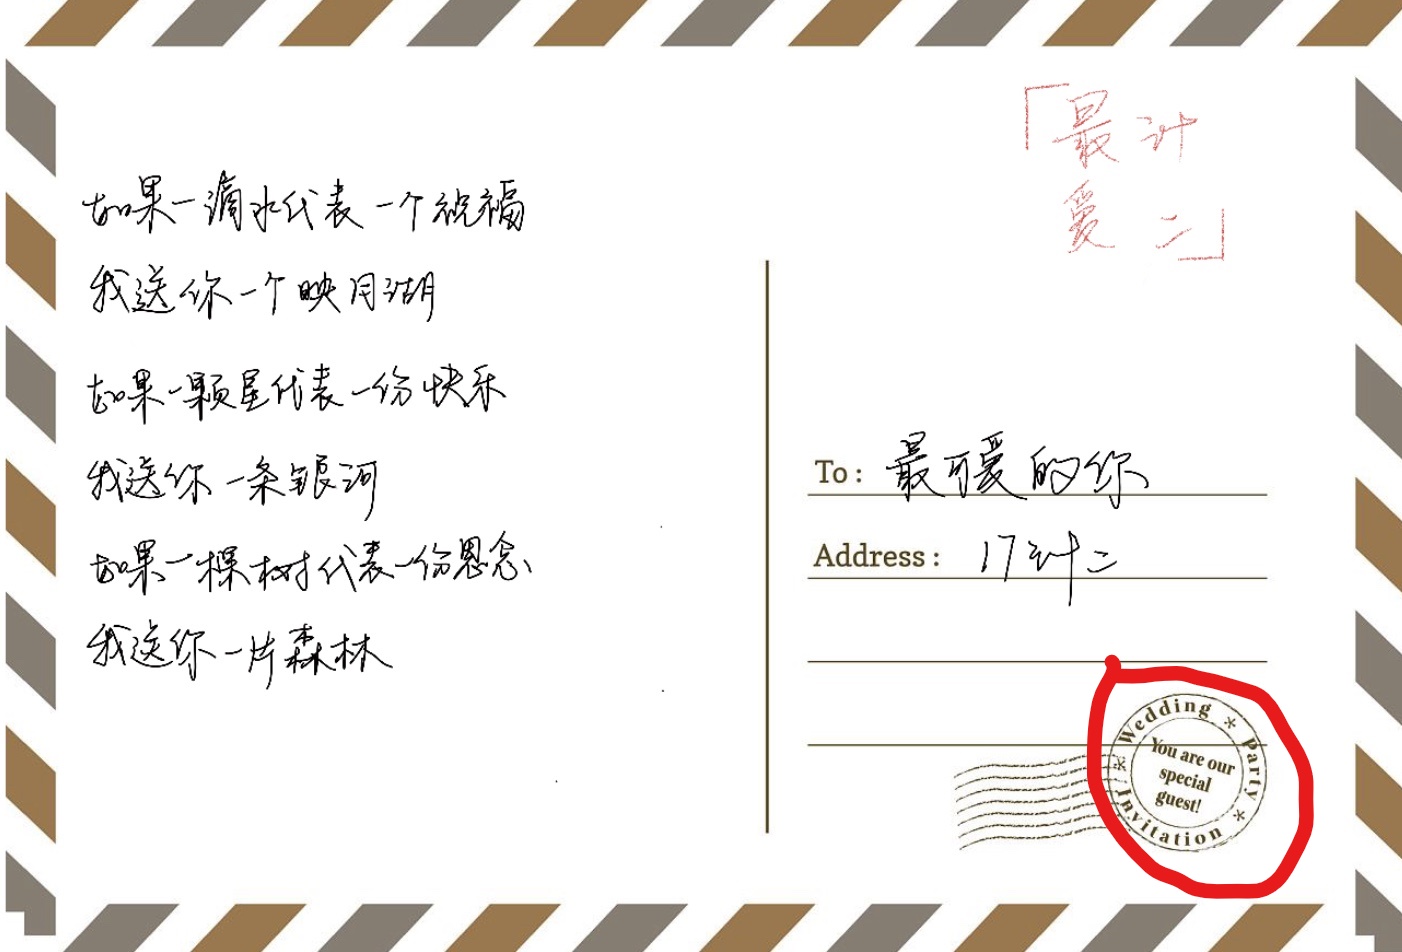 如果一滴水代表一个祝福
我送你一个映月湖
如果一颗星代表一份快乐
我送你一条银河
如果一棵树代表一份思念
我送你一片森林
「最计
爱二」
To: 最可爱的你
Address: 17计二
Wedding Party Invitation
You are our
special
guest!